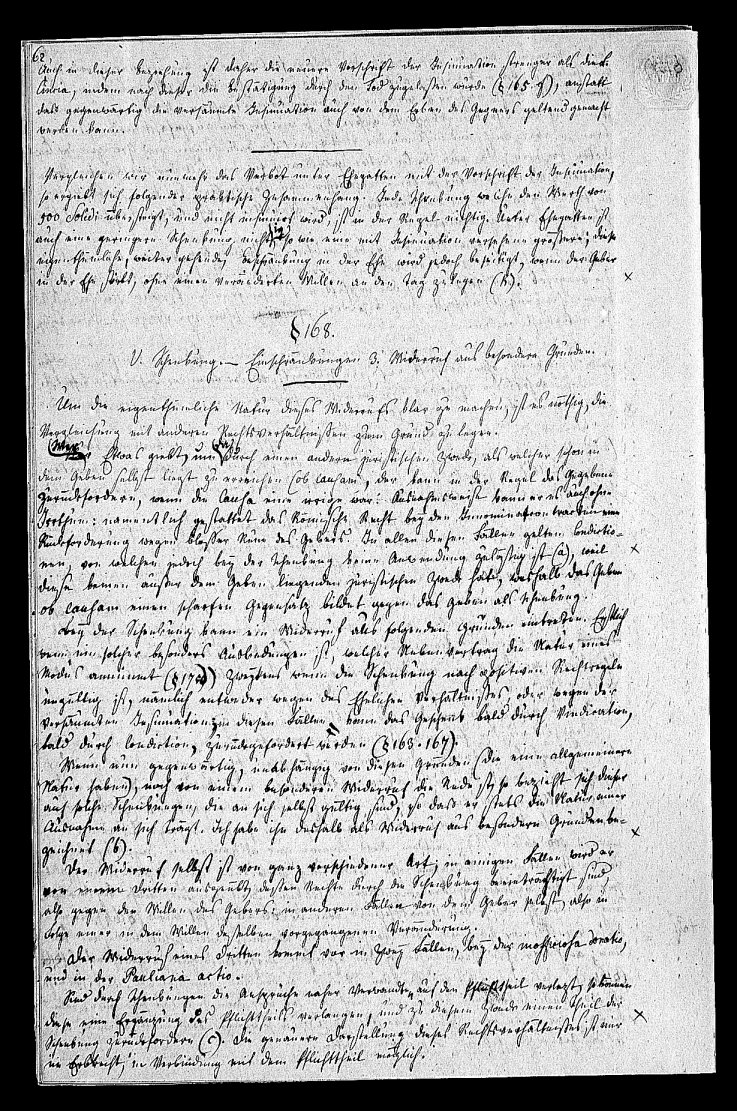 62
Auch in dieser Beziehung ist daher die neuere Vorschrift der Insinuation strenger als die L.
Cincia, indem nach dieser die Bestätigung durch den Tod zugelassen wurde (§ 165 f), anstatt
daß gegenwärtig die versäumte Insinuation auch von dem Erben des Gegners geltend gemacht
werden kann.
Vergleichen wir nunmehr das Verbot unter Ehegatten mit der Vorschrift der Insinuation,
so ergiebt sich folgender praktische Zusammenhang. Jede Schenkung welche den Werth von
500 Solidi übersteigt, und nicht insinuirt wird, ist in der Regel nichtig. Unter Ehegatten ist
auch eine geringere Schenkung nichtig, so wie eine mit Insinuation versehene größere; diese
eigenthümliche, weiter gehende, Beschränkung in der Ehe wird jedoch beseitigt, wenn der Geber
in der Ehe stirbt, ohne einen veränderten Willen an den Tag zu legen (h).
§ 168.
V. Schenkung. — Einschränkungen 3. Widerruf aus besondern Gründen.
Um die eigenthümliche Natur dieses Widerrufs klar zu machen, ist es nöthig, die
Vergleichung mit anderen Rechtsverhältnissen zum Grund zu legen.
Wer Etwas giebt, um dadurch einen andern juristischen Zweck, als welcher schon in
dem Geben selbst liegt zu erreichen (ob causam), der kann in der Regel das Gegebene
zurückfordern, wenn die Causa eine irrige war. Ausnahmsweise kann er es auch ohne
Irrthum: namentlich gestattet das Römische Recht bey den Innominatcontracten eine
Rückforderung wegen bloßer Reue des Gebers. In allen diesen Fällen gelten Condictio-
nen, von welchen jedoch bey der Schenkung keine Anwendung zulässig ist (a), weil
diese keinen außer dem Geben liegenden juristischen Zweck hat, weshalb das Geben
ob causam einen scharfen Gegensatz bildet gegen das Geben als Schenkung.
Bey der Schenkung kann ein Widerruf aus folgenden Gründen eintreten. Erstlich
wenn ein solcher besonders ausbedungen ist, welcher Nebenvertrag die Natur eines
Modus annimmt (§ 175) Zweytens wenn die Schenkung nach positiven Rechtsregeln
ungültig ist, nämlich entweder wegen des Ehelichen Verhältnisses oder wegen der
versäumten Insinuation; in diesen Fällen kann das Geschenk bald durch Vindication,
bald durch Condiction, zurückgefordert werden (§ 163-167).
Wenn nun gegenwärtig, unabhängig von diesen Gründen (die eine allgemeinere
Natur haben), noch von einem besonderen Widerruf die Rede ist, so bezieht sich dieser
auf solche Schenkungen, die an sich selbst gültig sind, so daß er stets die Natur einer
Ausnahme an sich trägt. Ich habe ihn deshalb als Widerruf aus besondern Gründen be-
zeichnet (b).
Der Widerruf selbst ist von ganz verschiedener Art; in einigen Fällen wird er
von einem Dritten ausgeübt, dessen Rechte durch die Schenkung beeinträchtigt sind
also gegen den Willen des Gebers; in anderen Fällen von dem Geber selbst, also in
Folge einer in dem Willen desselben vorgegangenen Veränderung.
Der Widerruf eines Dritten kommt vor in zwey Fällen, bey der inofficiosa donatio,
und in der Pauliana actio.
Sind durch Schenkungen die Ansprüche naher Verwandten auf den Pflichttheil verletzt, so können
diese eine Ergänzung des Pflichttheils verlangen, und zu diesem Zweck einen Theil der
Schenkung zurückfordern (c). Die genauere Darstellung dieses Rechtsverhältnisses ist nur
im Erbrecht, in Verbindung mit dem Pflichttheil möglich.